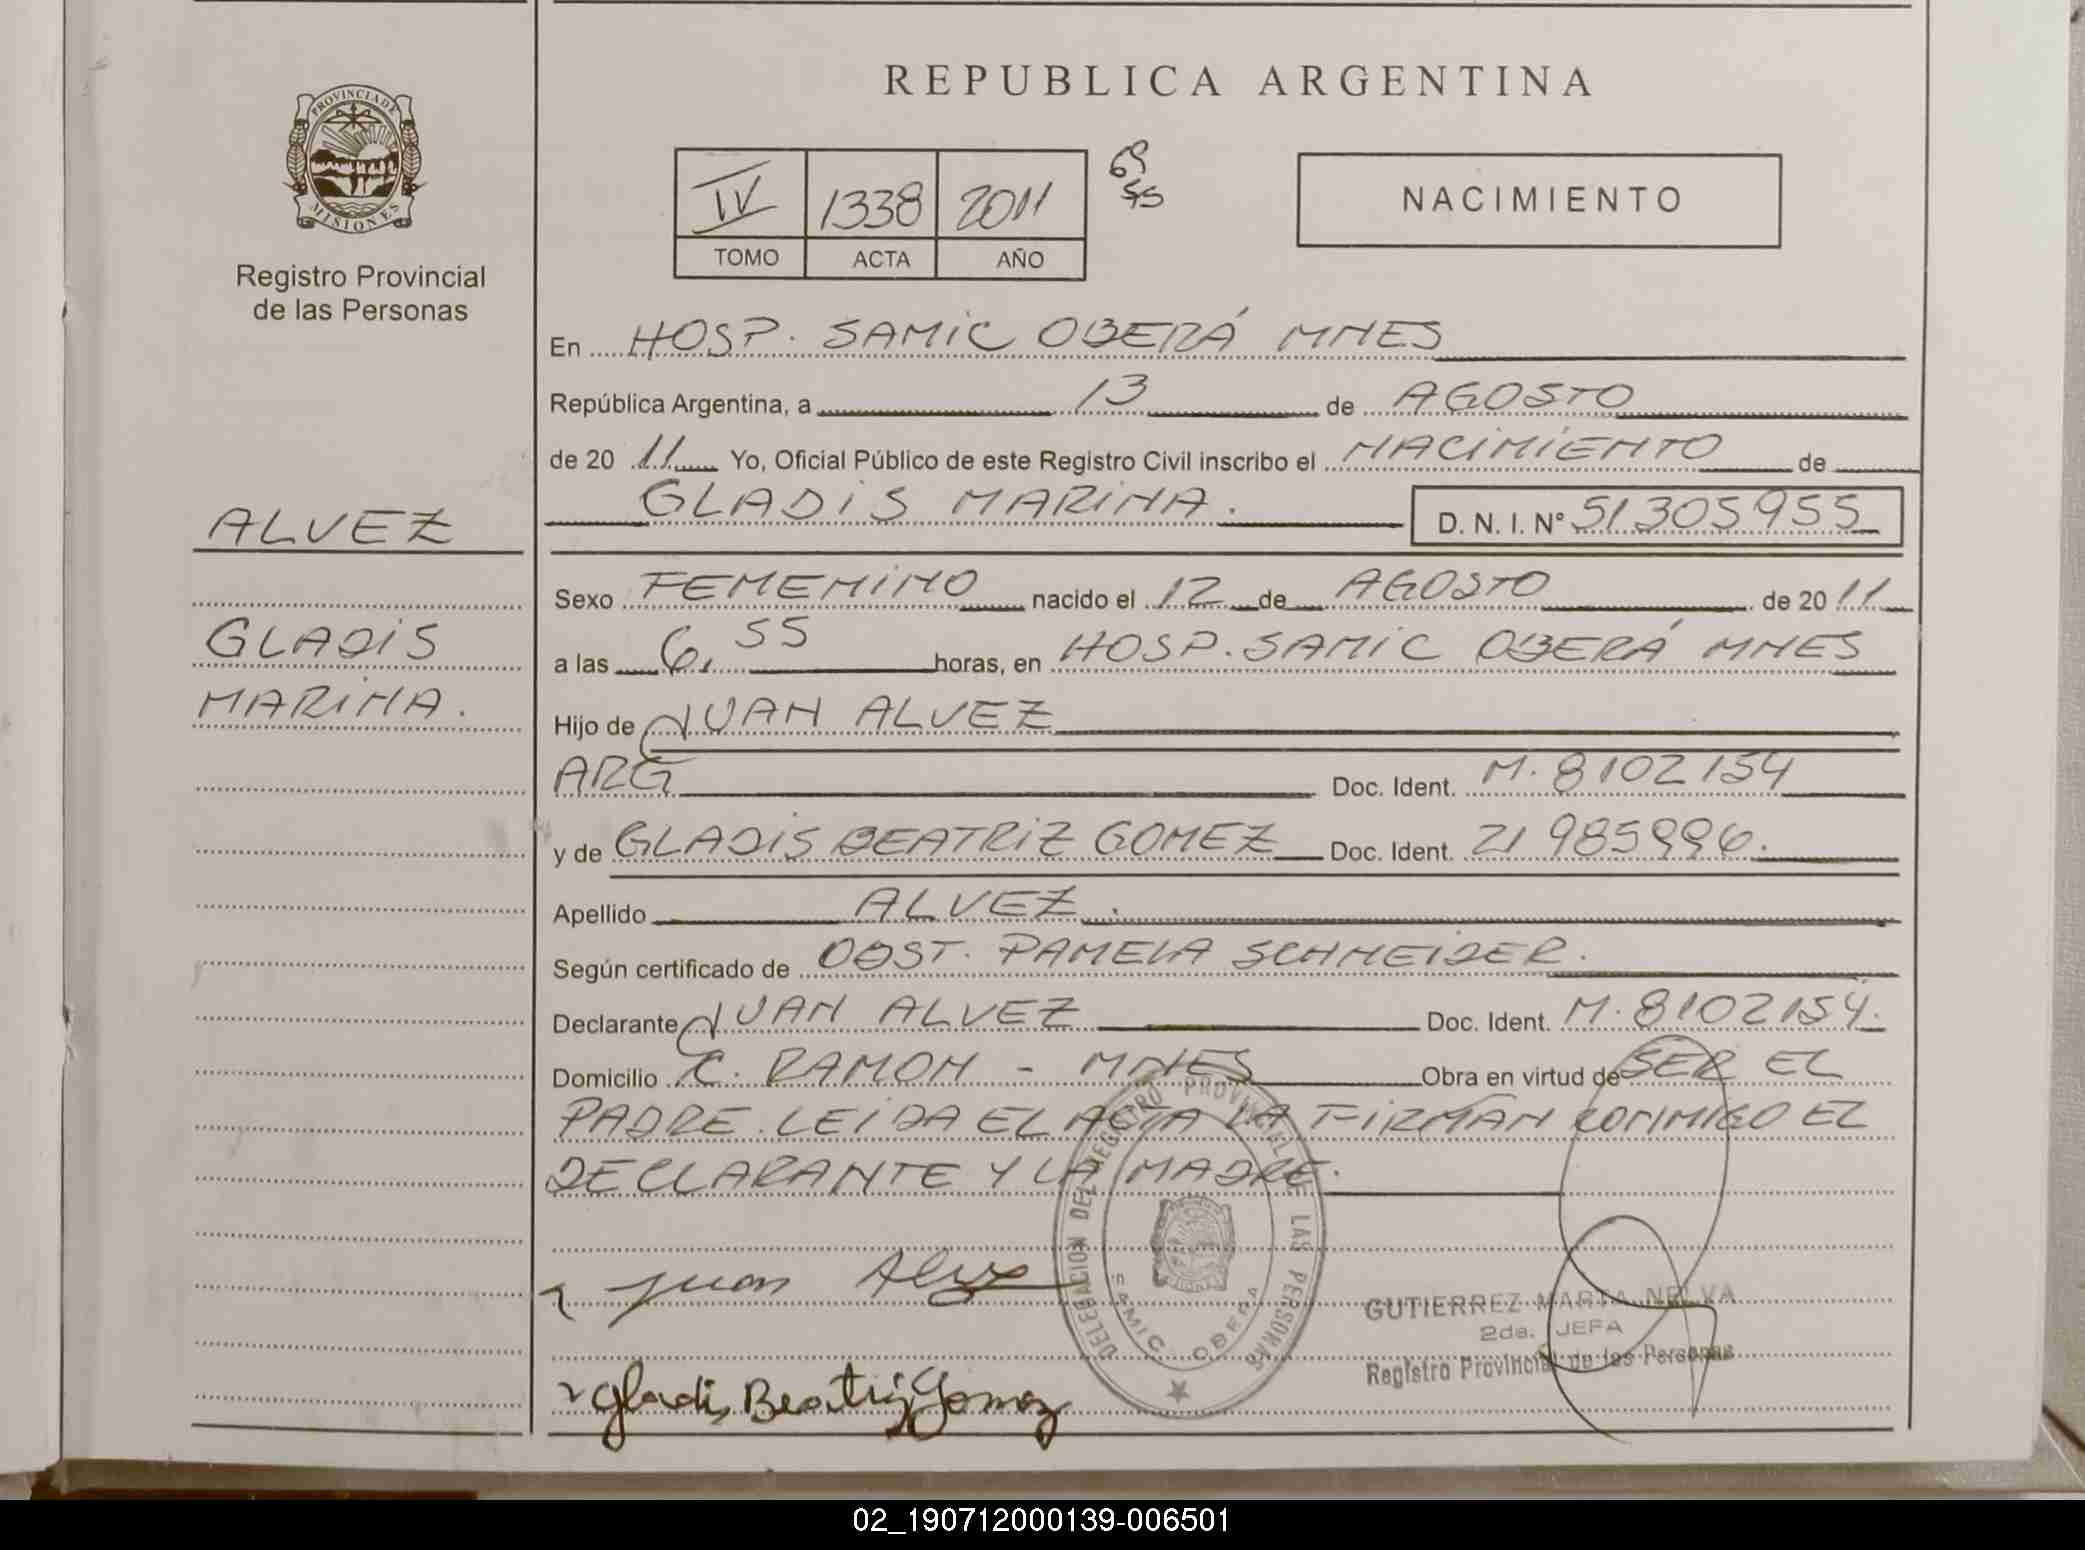 REPUBLICA ARGENTINA
PROVINCIA DE
MISIONES
Registro Provincial
de las Personas
IV 1338 2011
TOMO ACTA AÑO
NACIMIENTO
En HOSP. SAMIC OBERÁ MNES
República Argentina, a 13 de AGOSTO
de 20 11 Yo, Oficial Público de este Registro Civil inscribo el NACIMIENTO de
GLADIS MARINA. D. N. I. Nº 51305955
ALVEZ
GLADIS
MARINA.
Sexo FEMENINO nacido el 12 de AGOSTO de 20 11
a las 6,55 horas, en HOSP. SAMIC OBERÁ MNES
Hijo de JUAN ALVEZ
ARG Doc. Ident. M. 8102154
y de GLADIS BEATRIZ GOMEZ Doc. Ident.
Apellido ALVEZ.
Según certificado de OBST. PAMELA SCHNEIDER.
Declarante JUAN ALVEZ Doc. Ident. M. 8102154.
Domicilio C. RAMON - MNES Obra en virtud de SER EL
PADRE. LEIDA EL ACTA LA FIRMAN CONMIGO EL
DECLARANTE Y LA MADRE.
Juan Alvez
Gladis Beatriz Gomez
DELEGACION DEL REGISTRO PROVINCIAL DE LAS PERSONAS
SAMIC OBERA
GUTIERREZ MARTA NELVA
2da. JEFA
Registro Provincial de las Personas
02_190712000139-006501